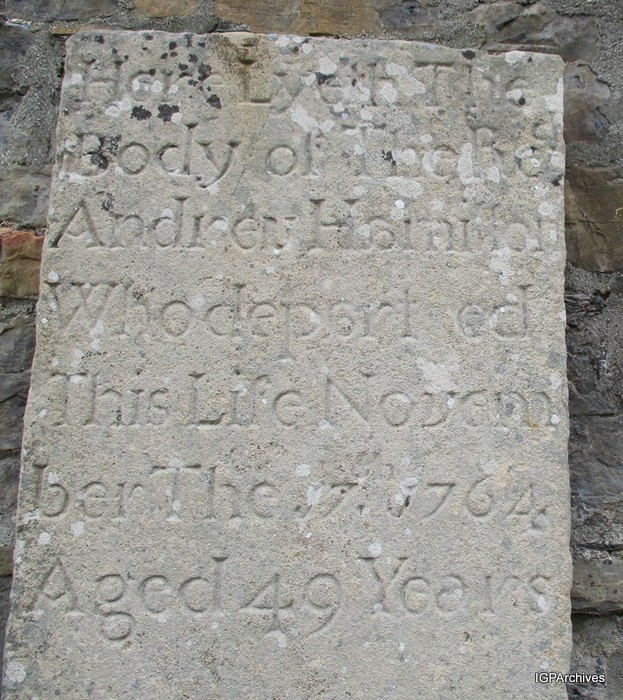 Here Lyeth The
Body of The Revd
Andrew Hamilton
Whodeport ed
This Life Novem
ber The 17th 1764
Aged 49 Years
IGPArchives